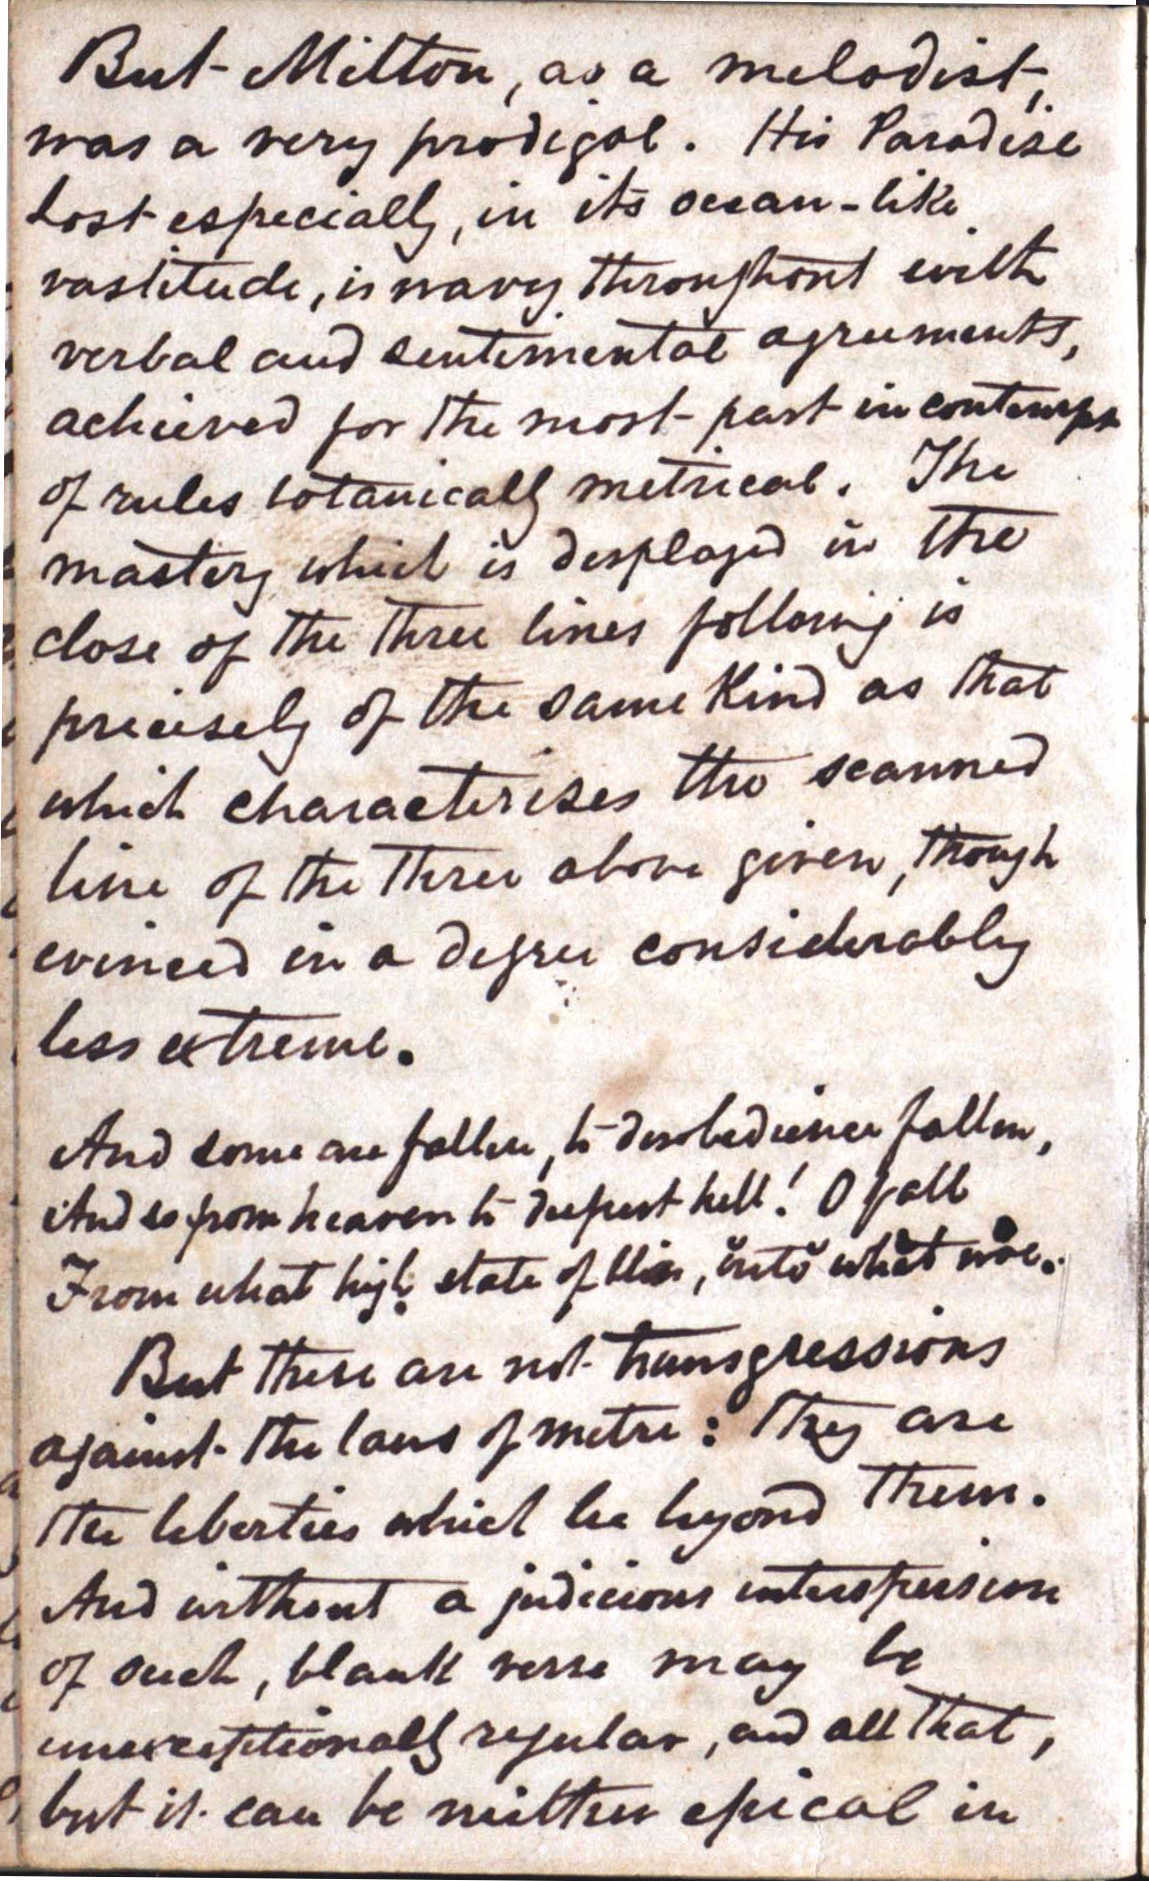 But Milton, as a melodist,
was a very prodigal. His Paradise
Lost especially, in its ocean-like
vastitude, is wavy throughout with
verbal and sentimental agreements,
achieved for the most part in contempt
of rules botanically metrical. The
mastery which is displayed in the
close of the three lines following is
precisely of the same kind as that
which characterises the scanned
line of the three above given, though
evinced in a degree considerably
less extreme.
And some are fallen, to disobedience fallen,
And so from heaven to deepest hell! O fall
From what high state of bliss, ĭntŏ whăt wŏe.
But these are not transgressions
against the laws of metre: They are
the liberties which lie beyond them.
And without a judicious interspersion
of such, blank verse may be
unexceptionally regular, and all that,
but it can be neither epical in